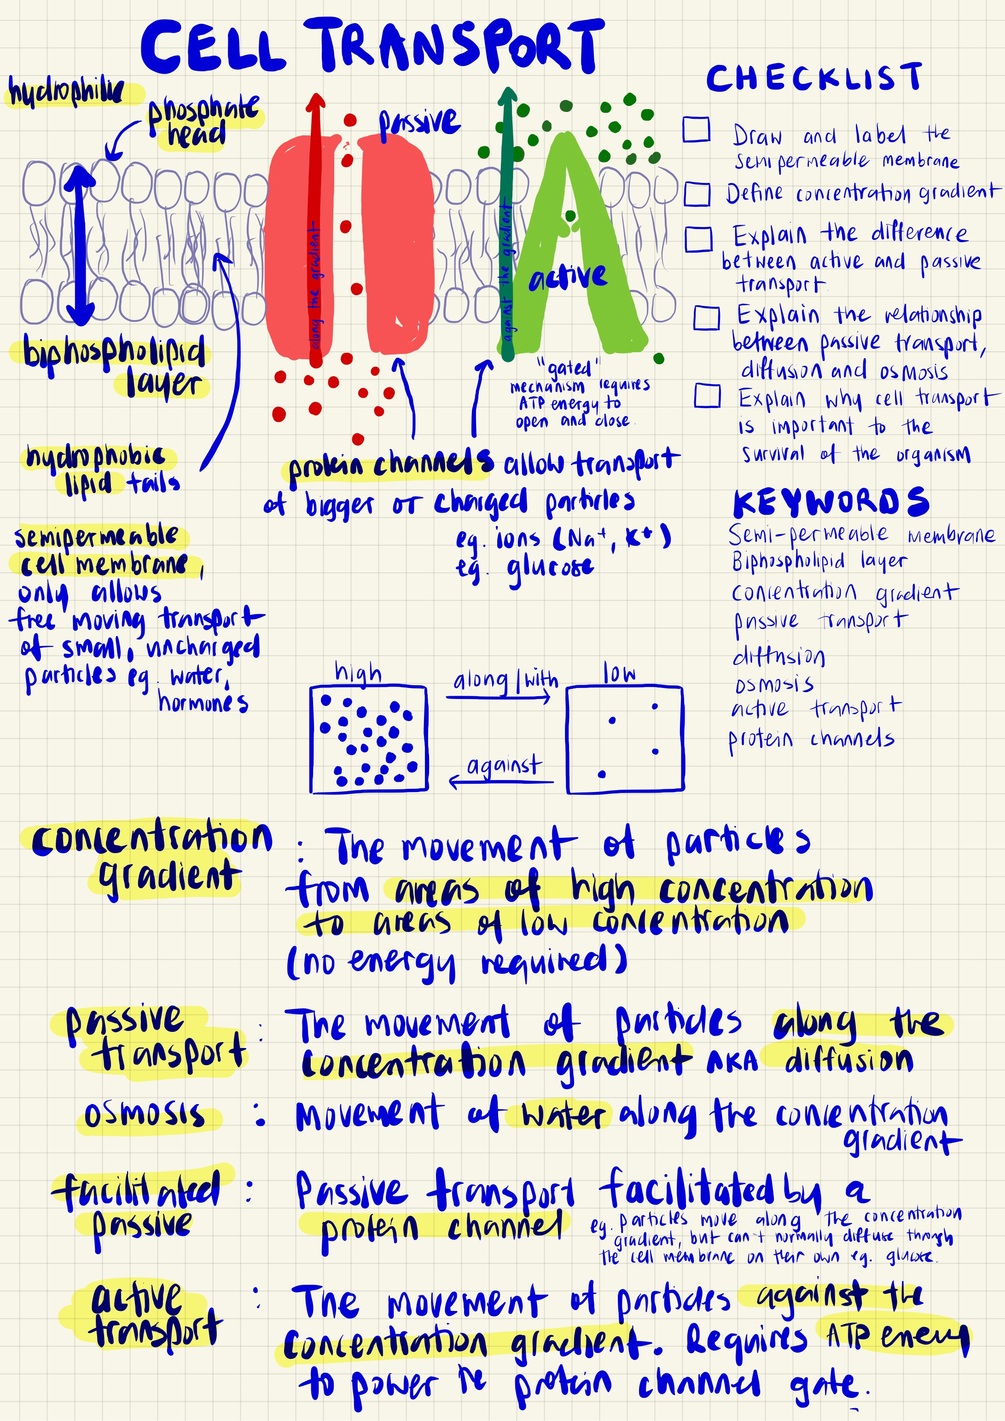 CELL TRANSPORT
hydrophilic
phosphate
head
passive
along the gradient
against the gradient
active
biphospholipid
layer
"gated"
mechanism requires
ATP energy to
open and close.
hydrophobic
lipid tails
protein channels allow transport
of bigger or charged particles
eg. ions (Na+, K+)
eg. glucose
semipermeable
cell membrane,
only allows
free moving transport
of small, uncharged
particles eg. water,
hormones
CHECKLIST
Draw and label the
semipermeable membrane
Define concentration gradient
Explain the difference
between active and passive
transport
Explain the relationship
between passive transport,
diffusion and osmosis
Explain why cell transport
is important to the
survival of the organism
KEYWORDS
Semi-permeable membrane
Biphospholipid layer
concentration gradient
passive transport
diffusion
osmosis
active transport
protein channels
high
along/with
low
against
concentration
gradient
: The movement of particles
from areas of high concentration
to areas of low concentration
(no energy required)
passive
transport
: The movement of particles along the
concentration gradient AKA diffusion
osmosis : movement of water along the concentration
gradient
facilitated
passive
: Passive transport facilitated by a
protein channel
eg. particles move along the concentration
gradient, but can't normally diffuse through
the cell membrane on their own eg. glucose.
active
transport
: The movement of particles against the
concentration gradient. Requires ATP energy
to power the protein channel gate.